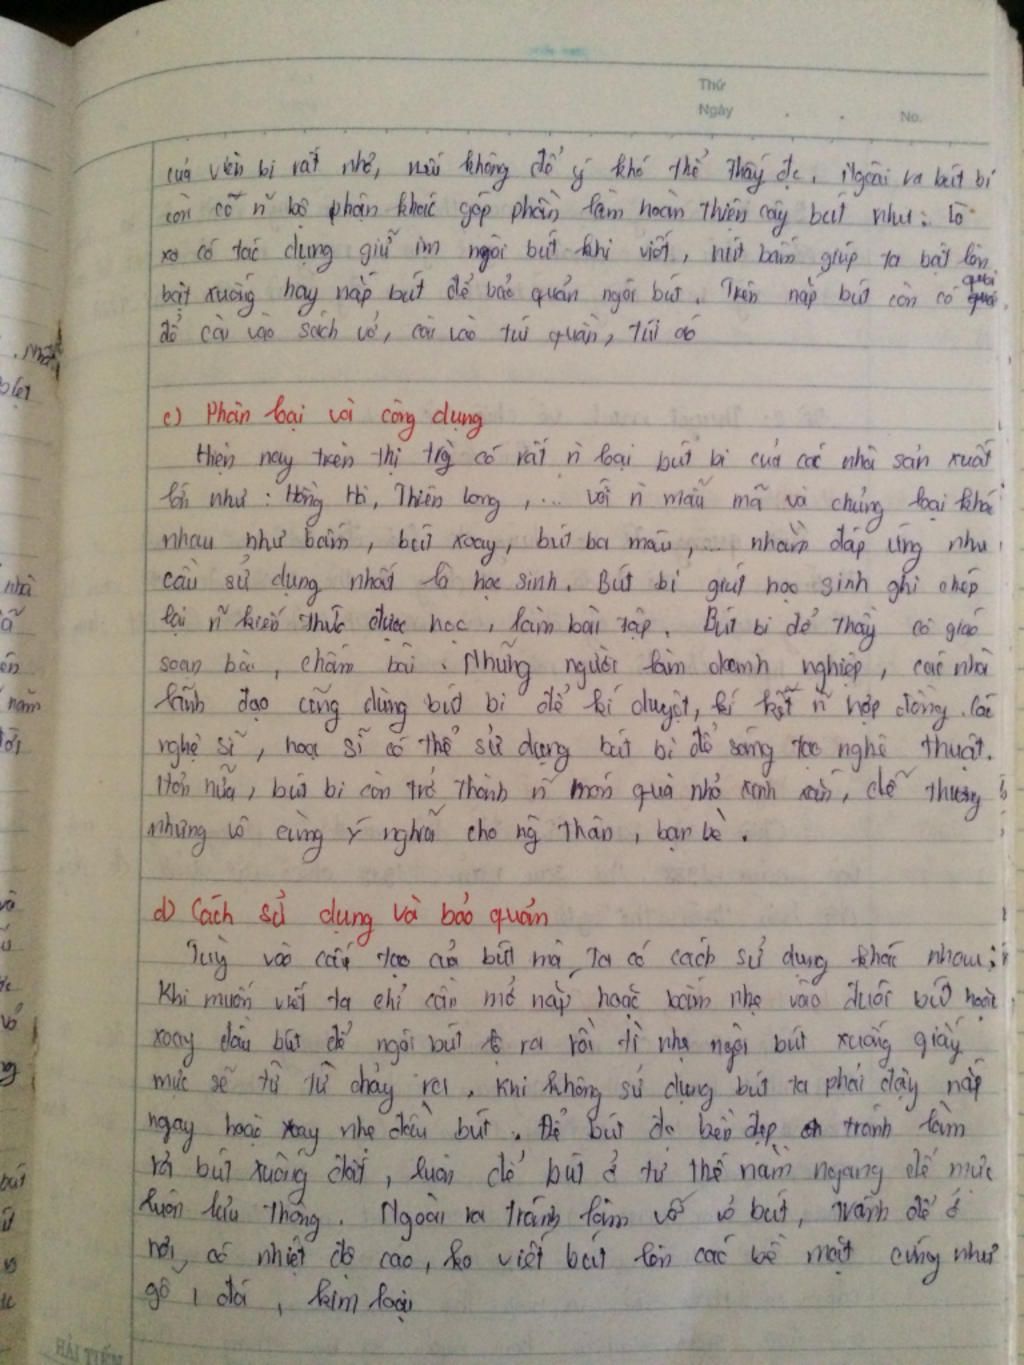 Thứ
Ngày
No.
của viên bi rất nhỏ, nếu không để ý khó thể thấy đc. Ngoài ra bút bi
còn có ~ bộ phận khác góp phần làm hoàn thiện cây bút như: Lò
xo có tác dụng giữ im ngòi bút khi viết, nút bấm giúp ta bật lên
bật xuống hay nắp bút để bảo quản ngòi bút. Trên nắp bút còn có quai
để cài vào sách vở, cài vào túi quần, túi áo
c) Phân loại và công dụng
Hiện nay trên thị trg có rất ~ loại bút bi của các nhà sản xuất
lớn như: Hồng Hà, Thiên Long, ... với ~ mẫu mã và chủng loại khác
nhau như bấm, bút xoay, bút ba màu, ... nhằm đáp ứng nhu
cầu sử dụng nhất là học sinh. Bút bi giút học sinh ghi chép
lại ~ kiến thức được học, làm bài tập. Bút bi để thầy cô giáo
soạn bài, chấm bài. Những người làm doanh nghiệp, các nhà
lãnh đạo cũng dùng bút bi để kí duyệt, kí kết ~ hợp đồng. Các
nghệ sĩ, hoạ sĩ có thể sử dụng bút bi để sáng tạc nghệ thuật.
Hơn nữa, bút bi còn trở thành ~ món quà nhỏ xinh xắn, dễ thương
nhưng vô cùng ý nghĩa cho ng thân, bạn bè.
d) Cách sử dụng và bảo quản
Tuỳ vào cấu tạo của bút mà ta có cách sử dụng khác nhau:
Khi muốn viết ta chỉ cần mở nắp hoặc bấm nhẹ vào đuôi bút hoặc
xoay đầu bút để ngòi bút ra rồi tì nhẹ ngòi bút xuống giấy
mực sẽ từ từ chảy ra. Khi không sử dụng bút ta phải đậy nắp
ngay hoặc xoay nhẹ đầu bút. Để bút đc bền đẹp tránh làm
rơi bút xuống đất, luôn để bút ở tư thế nằm ngang để mực
luôn lưu thông. Ngoài ra tránh làm vỡ vỏ bút, tránh để ở
nơi có nhiệt độ cao, ko viết bút lên các bề mặt cứng như
gỗ, đá, kim loại
HẢI TIẾN